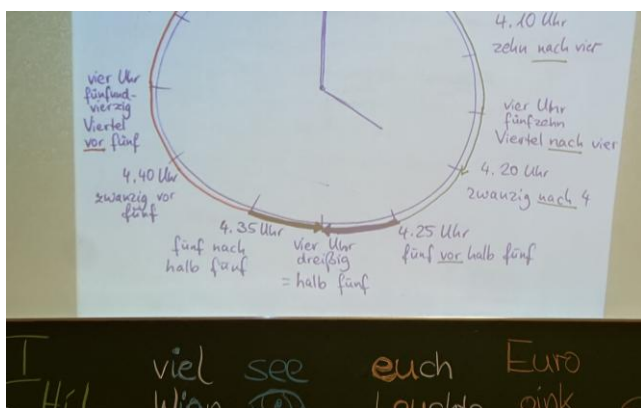 4.10 Uhr
zehn nach vier
vier Uhr
fünfzehn
Viertel nach vier
4.20 Uhr
zwanzig nach 4
4.25 Uhr
fünf vor halb fünf
vier Uhr
dreißig
= halb fünf
4.35 Uhr
fünf nach
halb fünf
4.40 Uhr
zwanzig vor
fünf
vier Uhr
fünfund-
vierzig
Viertel
vor fünf
I viel see euch Euro
Wien oink